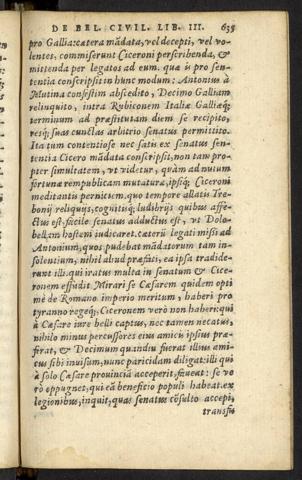 DE BEL. CIVIL. LIB. III. 639
pro Gallia: cætera mãdata, vel decepti, vel vo-
lentes, commiserunt Ciceroni perscribenda, &
mittenda per legatos ad eum. qua ũ pro sen-
tentia conscripsit in hunc modum: Antonius à
Mutina confestim abscedito, Decimo Galliam
relinquito, intra Rubiconem Italiæ Galliæq;
terminum ad præstitutam diem se recipito,
resq; suas cunctas arbitrio senatus permittito.
Ita tum contentiose nec satis ex senatus sen-
tentia Cicero mãdata conscripsit, non tam pro-
pter simultatem, ut videtur, quàm ad nutum
fortunæ rempublicam mutaturæ, ipsiq; Ciceroni
meditantis perniciem. quo tempore allatis Tre-
bonij reliquijs, cognitisq; ludibrijs quibus affe-
ctus est, facile senatus adductus est, ut Dolo-
bellam hostem iudicaret. cæterũ legati missi ad
Antonium, quos pudebat mãdatorum tam in-
solentium, nihil aliud præfati, ea ipsa tradide-
runt illi. qui iratus multa in senatum & Cice-
ronem effudit. Mirari se Cæsarem quidem opti
mè de Romano imperio meritum, haberi pro
tyranno regeq; Ciceronem verò non haberi: qui
à Cæsare iure belli captus, nec tamen necatus,
nihilo minus percussores eius amicis ipsius præ-
firat, & Decimum quandiu fuerat illius ami-
cus sibi invisum, nunc paricidam diligat: illi qui
à solo Cæsare provinciã acceperit, faveat: se ve
rò oppugnet, qui eã beneficio populi habeat. ex
legionibus, inquit, quas senatus cõsulto accepi,
transfu